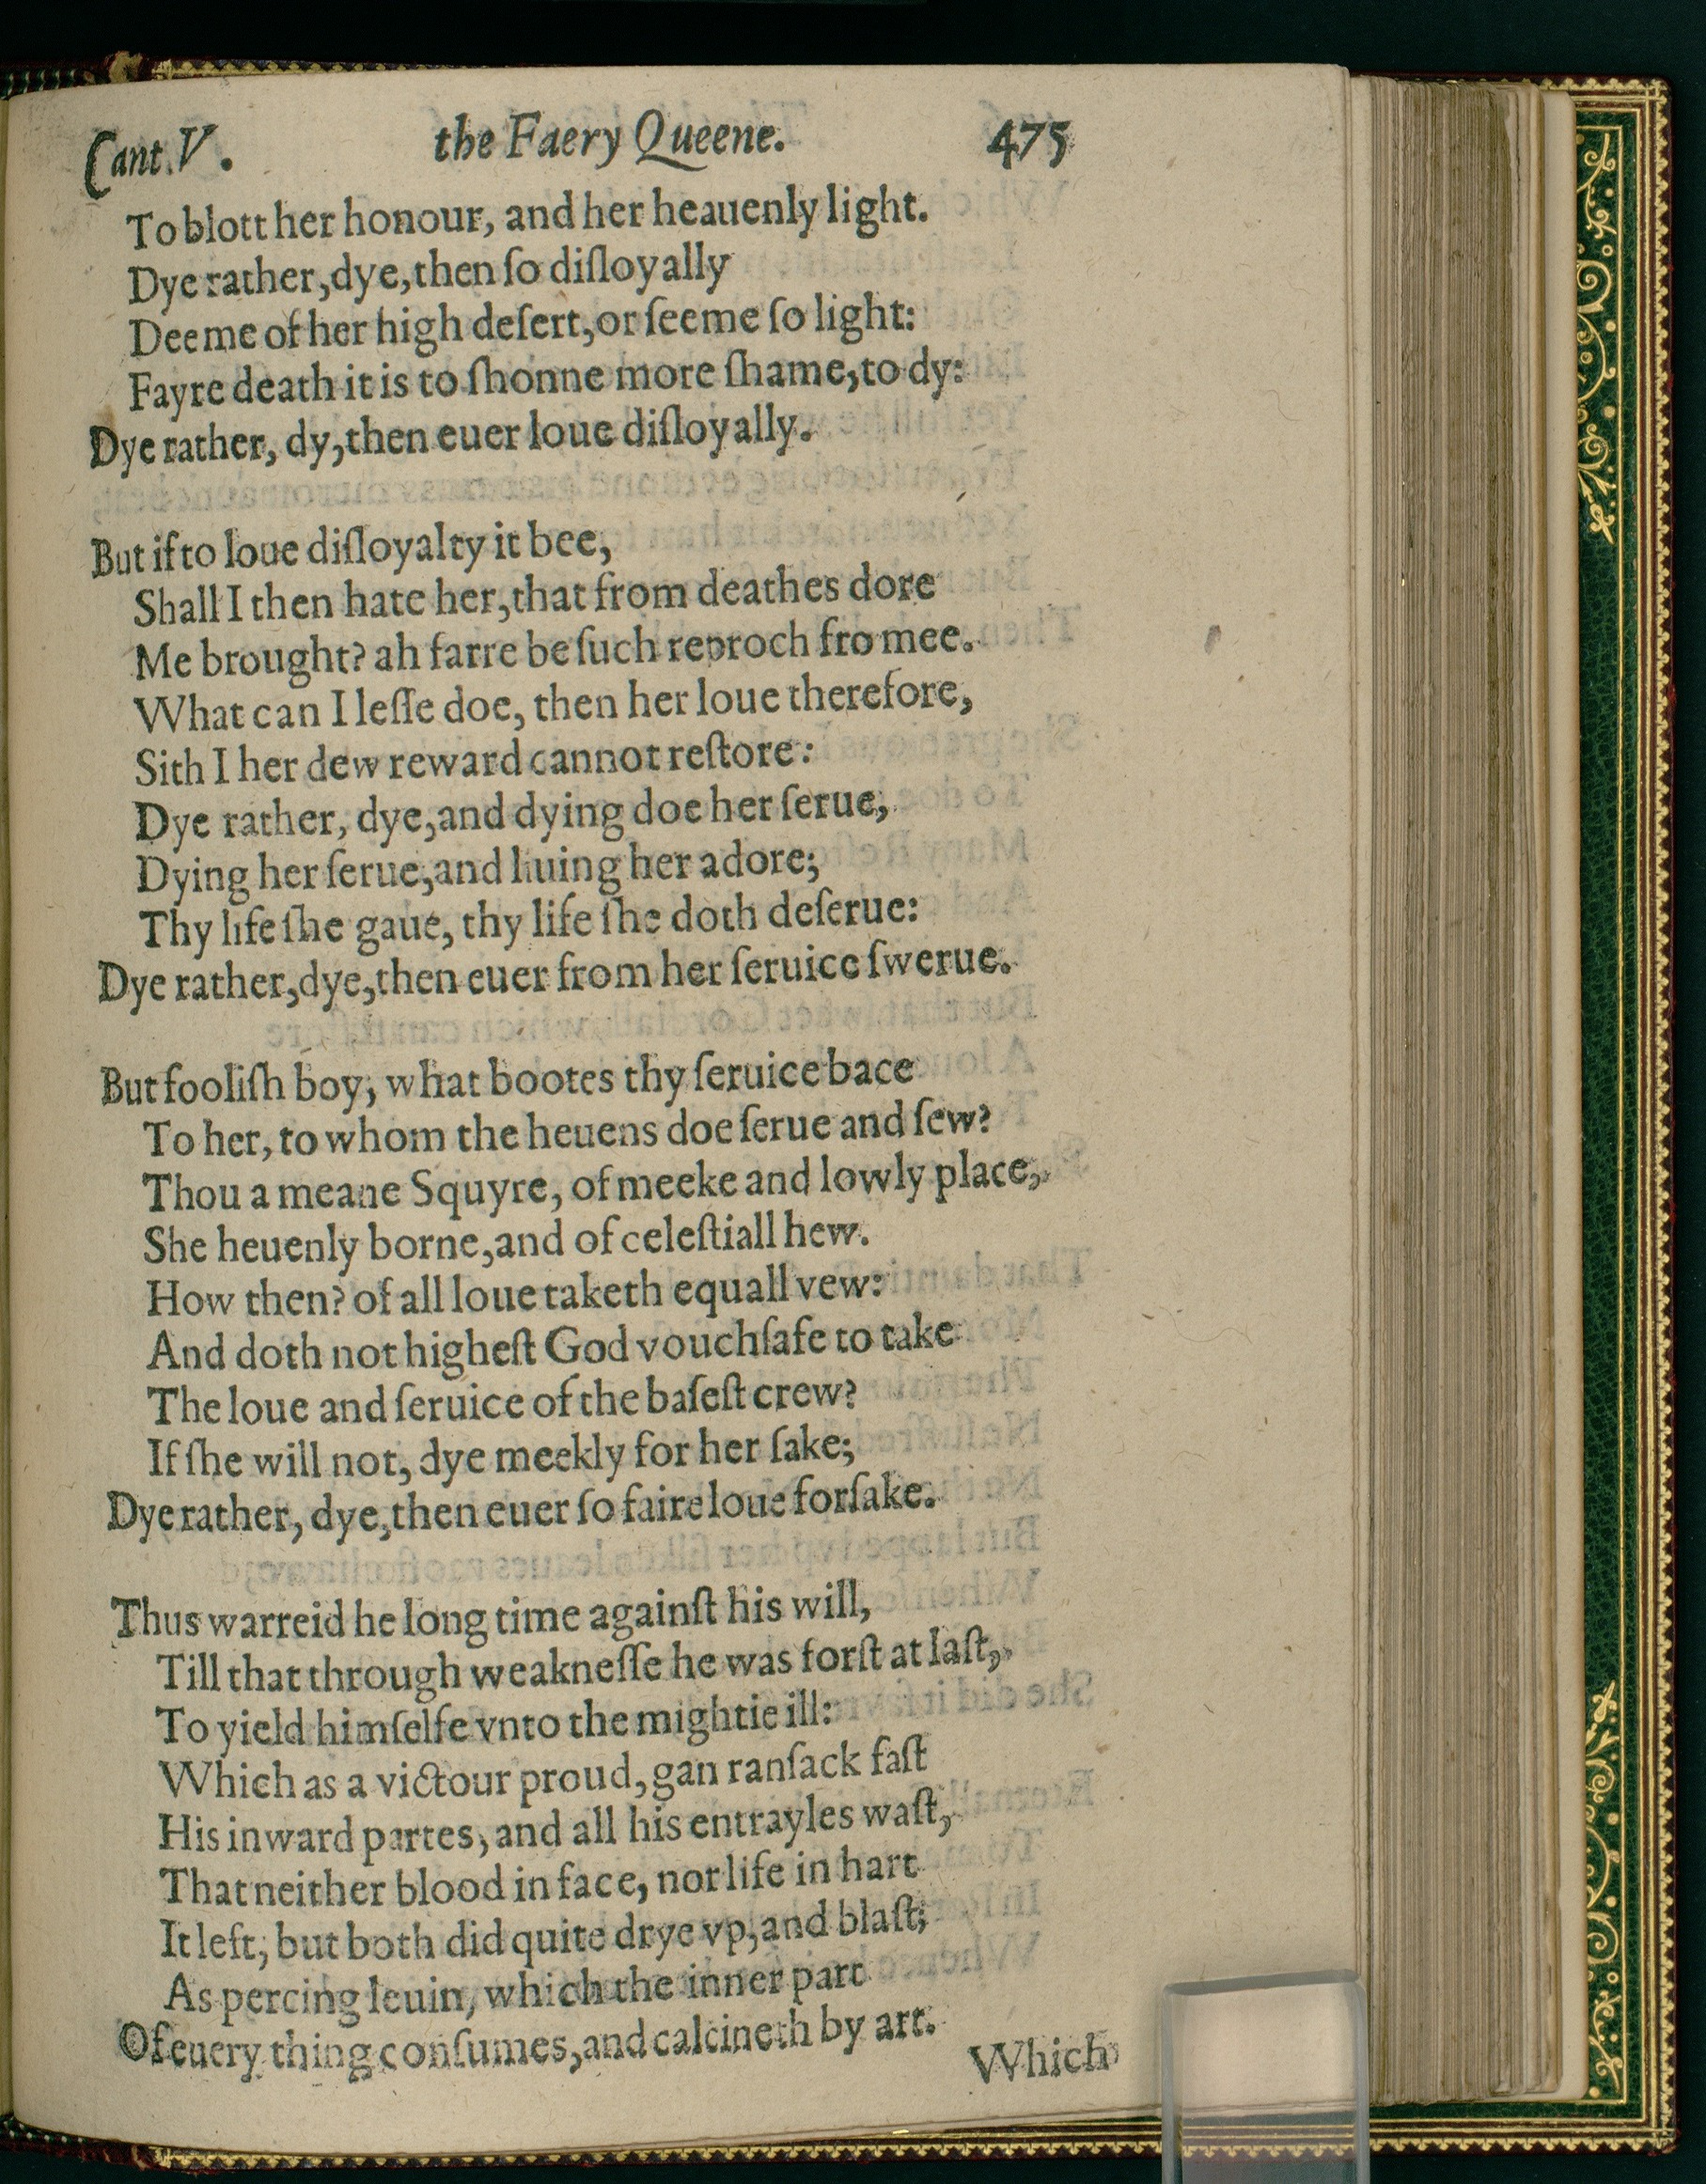 Cant. V. the Faery Queene. 475
To blott her honour, and her heauenly light.
Dye rather, dye, then ſo diſloyally
Deeme of her high deſert, or ſeeme ſo light:
Fayre death it is to ſhonne more ſhame, to dy:
Dye rather, dy, then euer loue diſloyally.
But if to loue diſloyalty it bee,
Shall I then hate her, that from deathes dore
Me brought? ah farre be ſuch reproch fro mee.
What can I leſſe doe, then her loue therefore,
Sith I her dew reward cannot reſtore:
Dye rather, dye, and dying doe her ſerue,
Dying her ſerue, and liuing her adore;
Thy life ſhe gaue, thy life ſhe doth deſerue:
Dye rather, dye, then euer from her ſeruice ſwerue.
But fooliſh boy, what bootes thy ſeruice bace
To her, to whom the heuens doe ſerue and ſew?
Thou a meane Squyre, of meeke and lowly place,
She heuenly borne, and of celeſtiall hew.
How then? of all loue taketh equall vew:
And doth not higheſt God vouchſafe to take
The loue and ſeruice of the baſeſt crew?
If ſhe will not, dye meekly for her ſake;
Dye rather, dye, then euer ſo faire loue forſake.
Thus warreid he long time againſt his will,
Till that through weakneſſe he was forſt at laſt,
To yield himſelfe vnto the mightie ill:
Which as a victour proud, gan ranſack faſt
His inward partes, and all his entrayles waſt,
That neither blood in face, nor life in hart
It left, but both did quite drye vp, and blaſt;
As percing leuin, which the inner part
Of euery thing conſumes, and calcineth by art.
Which